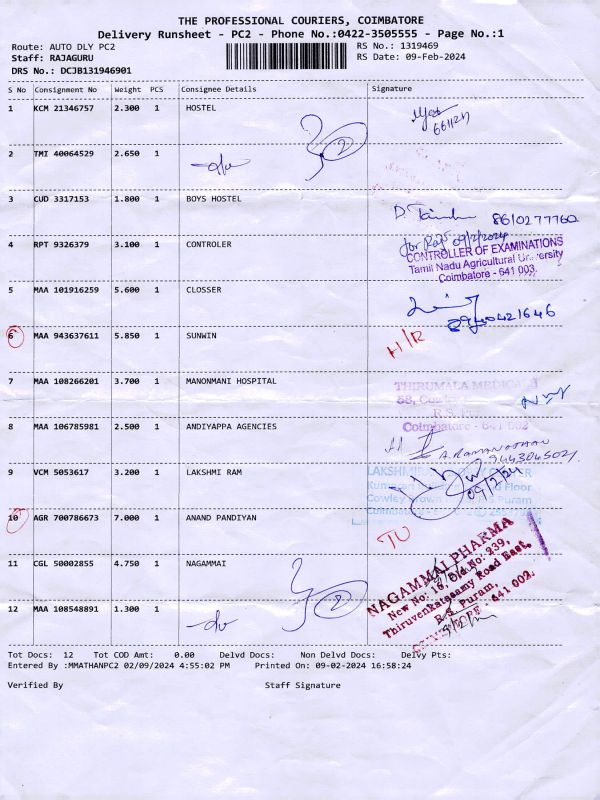 THE PROFESSIONAL COURIERS, COIMBATORE
Delivery Runsheet - PC2 - Phone No.:0422-3505555 - Page No.:1
Route: AUTO DLY PC2
RS No.: 1319469
Staff: RAJAGURU
RS Date: 09-Feb-2024
DRS No.: DCJB131946901
S No Consignment No Weight PCS Consignee Details Signature
1 KCM 21346757 2.300 1 HOSTEL
2 TMI 40064529 2.650 1 -do-
2
3 CUD 3317153 1.800 1 BOYS HOSTEL
8610277760
4 RPT 9326379 3.100 1 CONTROLER
09/2/2024
CONTROLLER OF EXAMINATIONS
Tamil Nadu Agricultural University
Coimbatore - 641 003.
5 MAA 101916259 5.600 1 CLOSSER
6 MAA 943637611 5.850 1 SUNWIN
H/R
7 MAA 108266201 3.700 1 MANONMANI HOSPITAL
THIRUMALA MEDICALS
R.S.
Coimbatore - 641 002
8 MAA 106785981 2.500 1 ANDIYAPPA AGENCIES
A. RAMANATHAN
9443045021
9 VCM 5053617 3.200 1 LAKSHMI RAM
LAKSHMI
Floor
Cowley Brown R.S.Puram
09/2/24
10 AGR 700786673 7.000 1 ANAND PANDIYAN
TU
11 CGL 50002855 4.750 1 NAGAMMAI
NAGAMMAI PHARMA
New No: 16, Old No: 239,
Thiruvenkatasamy Road East,
R.S. Puram,
641 002.
12 MAA 108548891 1.300 1 -do-
2
Tot Docs: 12 Tot COD Amt: 0.00 Delvd Docs: Non Delvd Docs: Delvy Pts:
Entered By :MMATHANPC2 02/09/2024 4:55:02 PM Printed On: 09-02-2024 16:58:24
Verified By Staff Signature